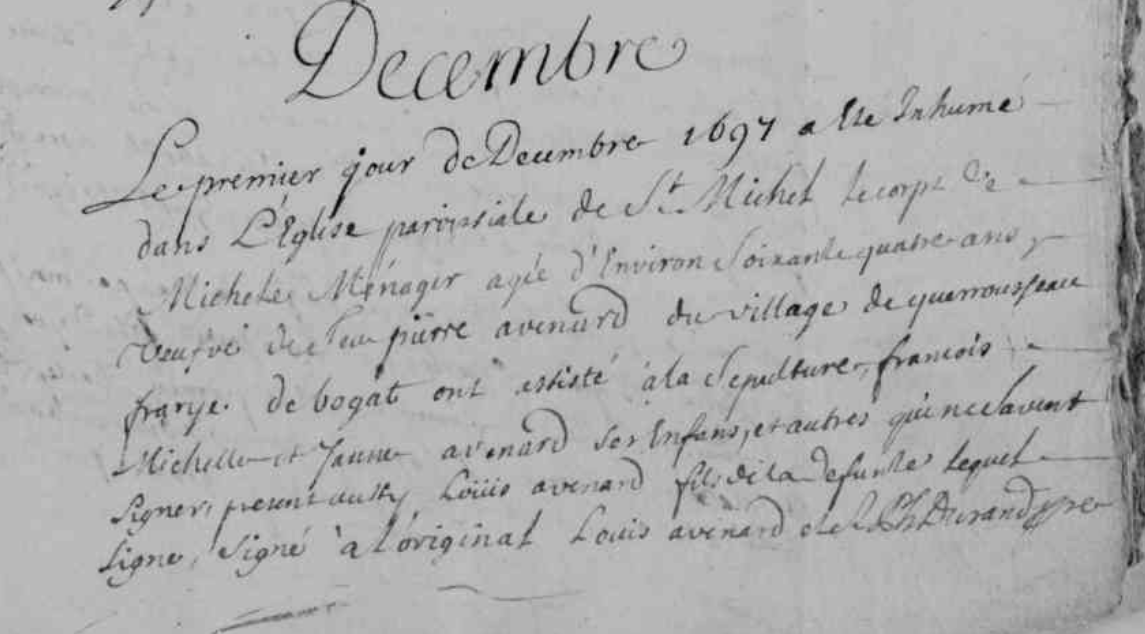 Decembre
Le premier jour de Decembre 1697 a ete Inhumé
dans L'Eglise paroissiale de St Michel le corps de
Michele Ménager agée d'Environ Soixante quatre ans,
veufve de feu pierre avenard du village de querrousseau
frarye de bogat ont assisté a la Sepulture, francois
Michelle et Janne avenard ses Enfans, et autres qui ne savent
signer, present aussy Louis avenard fils de la defunte lequel
signe, signé a l'original Louis avenard et Durand